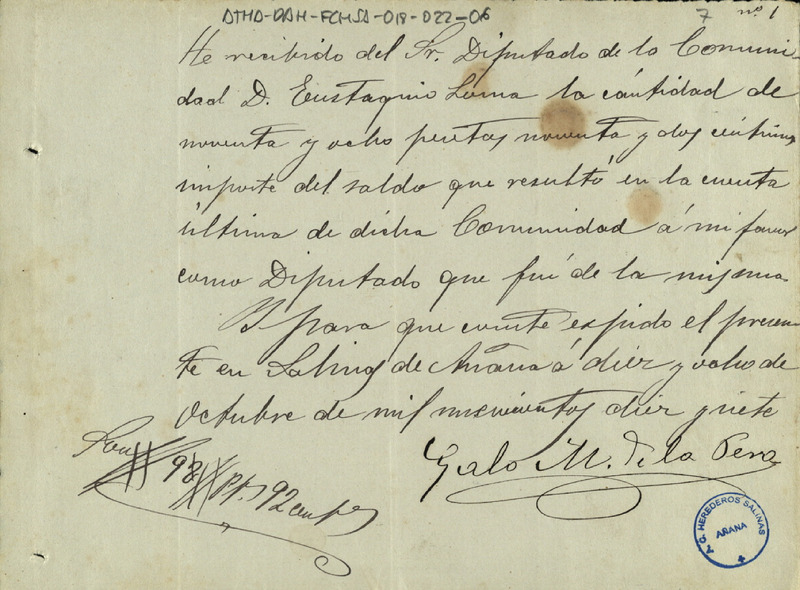 ATHA-DAH-FCHSA-018-022-06
7 nº 1
He recibido del Sr. Diputado de la Comuni-
dad D. Eustaquio Loma la cántidad de
noventa y ocho pesetas noventa y dos céntimos
importe del saldo que resultó en la cuenta
última de dicha Comunidad á mi favor
como Diputado que fuí de la misma
Y para que conste expido el presen-
te en Salinas de Añana á diez y ocho de
Octubre de mil novecientos diez y siete
Galo M. de la Pera
Son 98 Pts 92 cents
A.C. HEREDEROS SALINAS
AÑANA